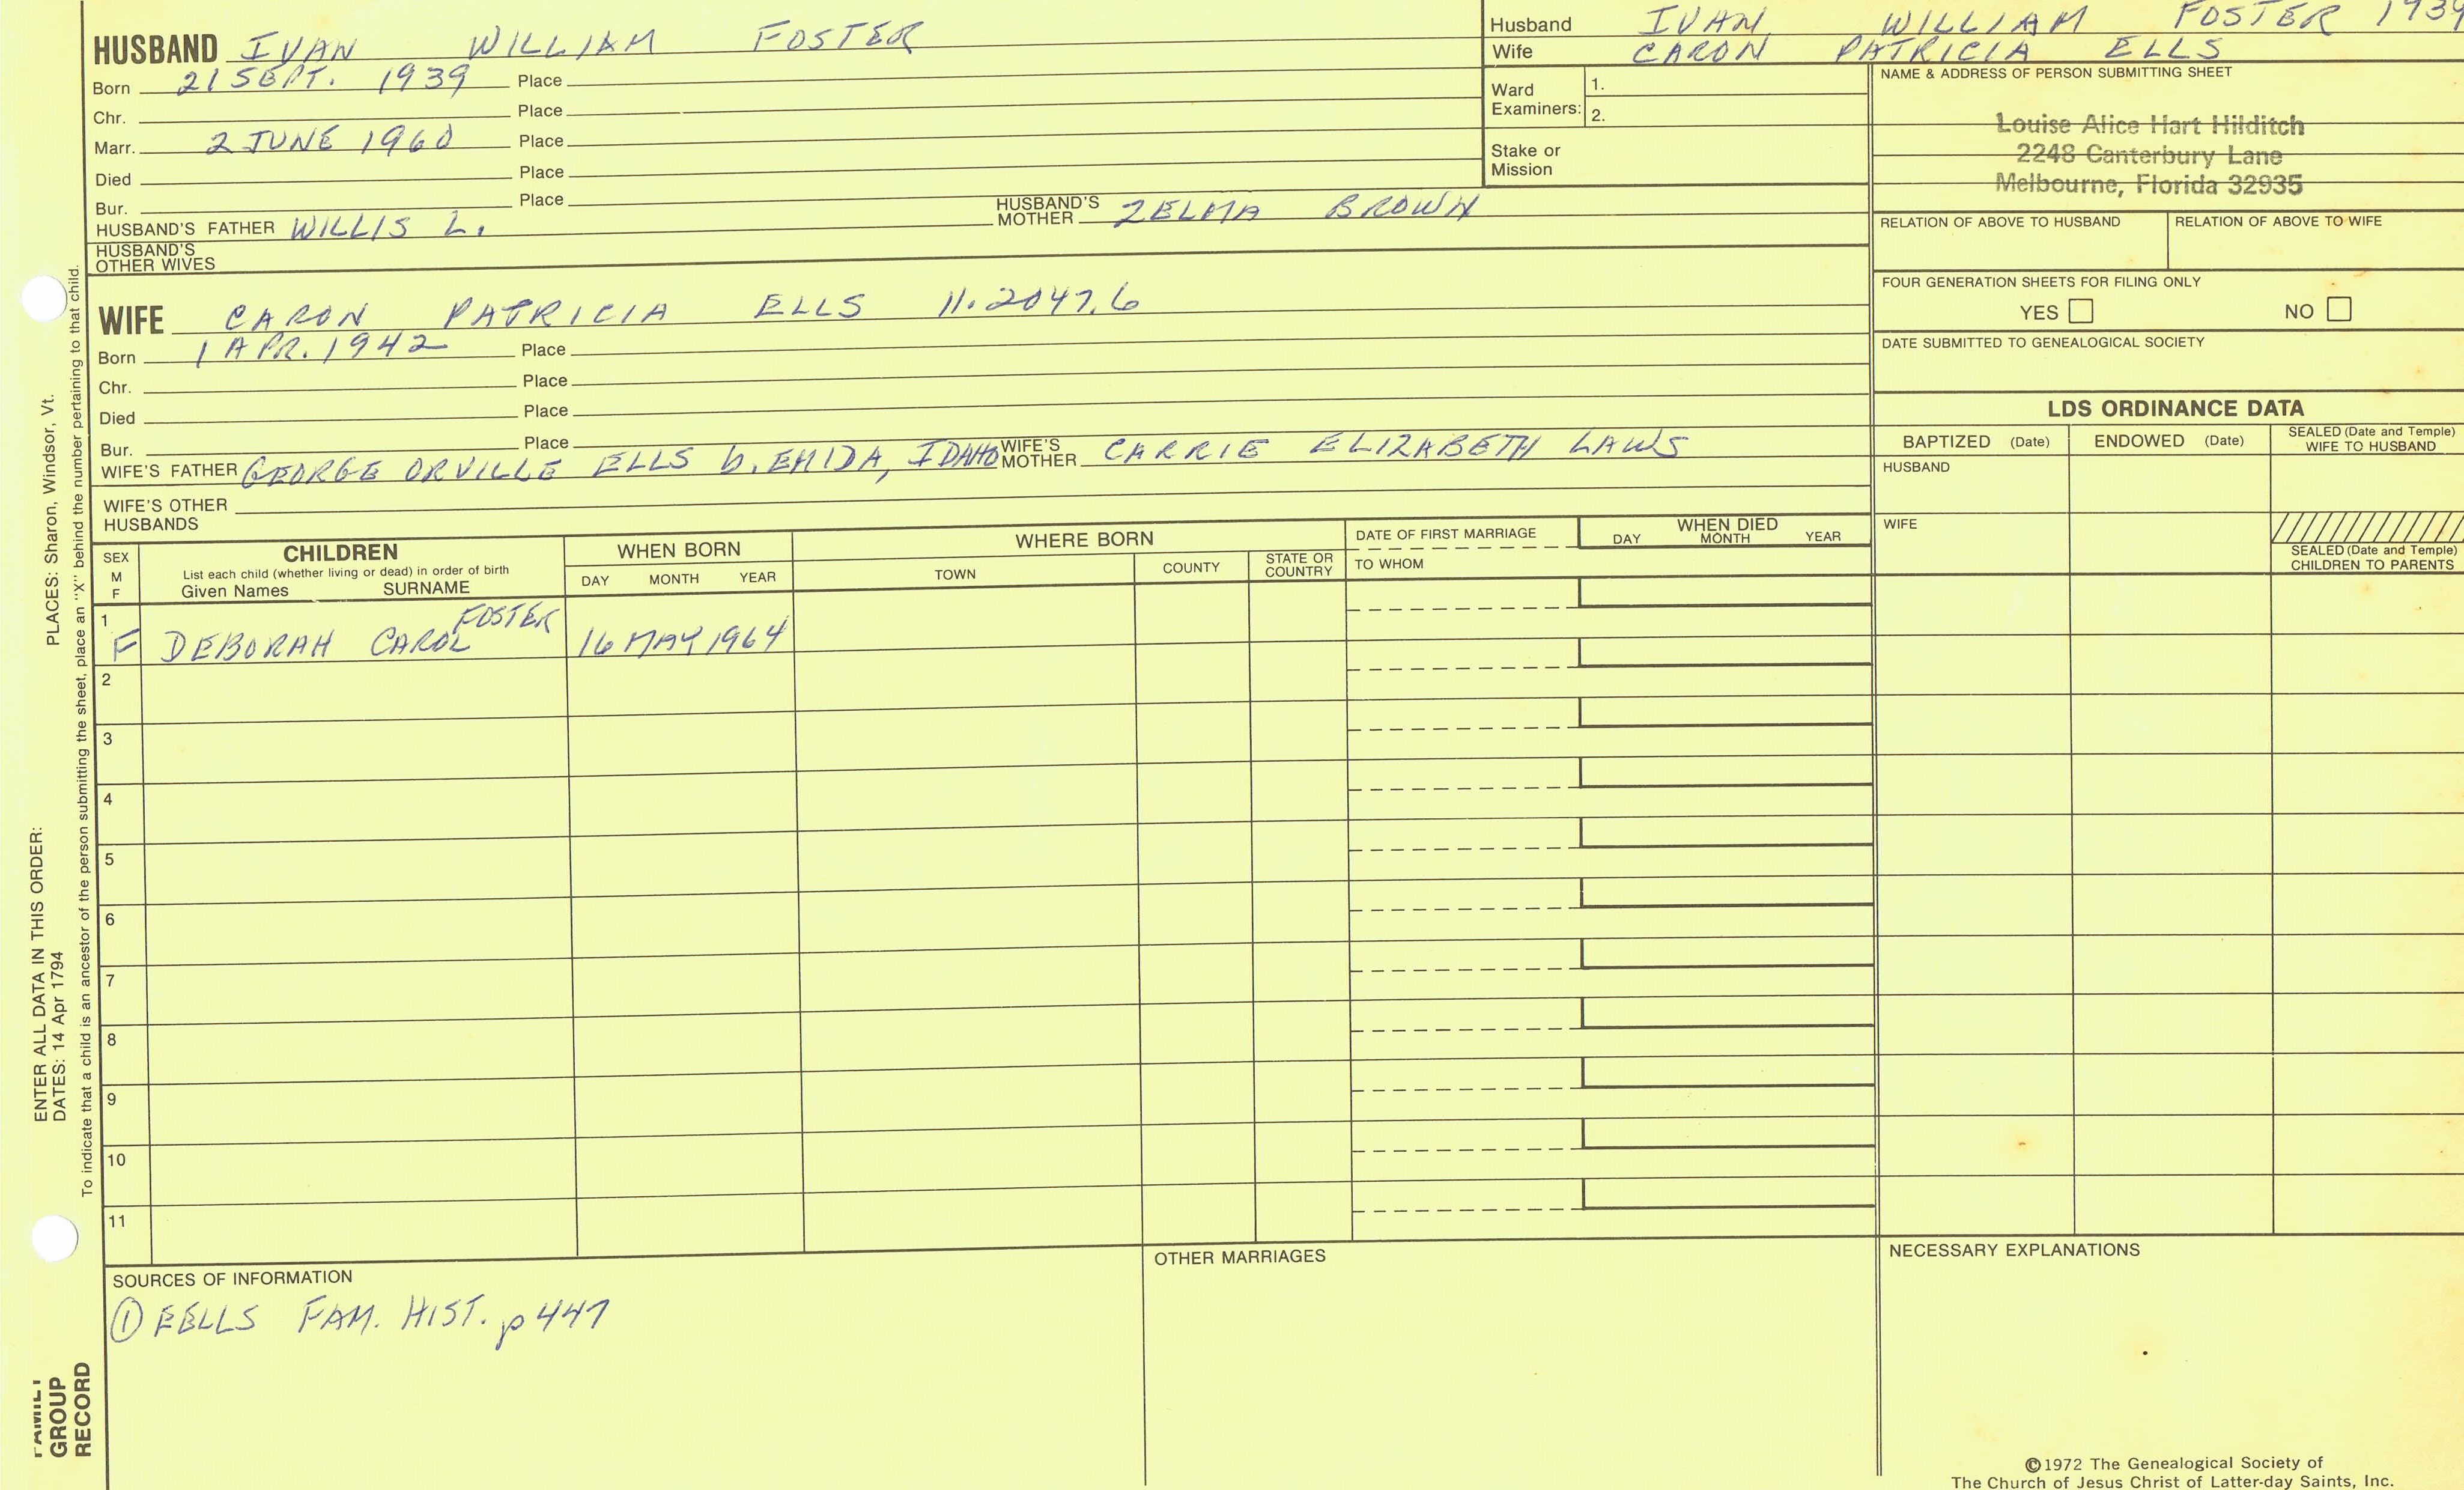 HUSBAND IVAN WILLIAM FOSTER
Born 21 SEPT. 1939 Place
Chr. Place
Marr. 2 JUNE 1960 Place
Died Place
Bur. Place
HUSBAND'S FATHER WILLIS L. HUSBAND'S MOTHER ZELMA BROWN
HUSBAND'S OTHER WIVES
Husband IVAN WILLIAM FOSTER 1939
Wife CARON PATRICIA ELLS
Ward Examiners: 1.
2.
Stake or Mission
NAME & ADDRESS OF PERSON SUBMITTING SHEET
Louise Alice Hart Hilditch
2248 Canterbury Lane
Melbourne, Florida 32935
RELATION OF ABOVE TO HUSBAND RELATION OF ABOVE TO WIFE
FOUR GENERATION SHEETS FOR FILING ONLY
YES NO
DATE SUBMITTED TO GENEALOGICAL SOCIETY
WIFE CARON PATRICIA ELLS 11.2047.6
Born 1 APR. 1942 Place
Chr. Place
Died Place
Bur. Place
WIFE'S FATHER GEORGE ORVILLE ELLS b. EMIDA, IDAHO WIFE'S MOTHER CARRIE ELIZABETH LAWS
WIFE'S OTHER HUSBANDS
LDS ORDINANCE DATA
BAPTIZED (Date) ENDOWED (Date) SEALED (Date and Temple) WIFE TO HUSBAND
HUSBAND
WIFE
SEALED (Date and Temple) CHILDREN TO PARENTS
SEX M F
CHILDREN
List each child (whether living or dead) in order of birth
Given Names SURNAME
WHEN BORN
DAY MONTH YEAR
WHERE BORN
TOWN COUNTY STATE OR COUNTRY
DATE OF FIRST MARRIAGE
TO WHOM
WHEN DIED
DAY MONTH YEAR
1
F DEBORAH CAROL FOSTER 16 MAY 1964
2
3
4
5
6
7
8
9
10
11
SOURCES OF INFORMATION
① EELLS FAM. HIST. p 447
OTHER MARRIAGES
NECESSARY EXPLANATIONS
©1972 The Genealogical Society of
The Church of Jesus Christ of Latter-day Saints, Inc.
ENTER ALL DATA IN THIS ORDER:
DATES: 14 Apr 1794 PLACES: Sharon, Windsor, Vt.
To indicate that a child is an ancestor of the person submitting the sheet, place an "X" behind the number pertaining to that child.
FAMILY
GROUP
RECORD